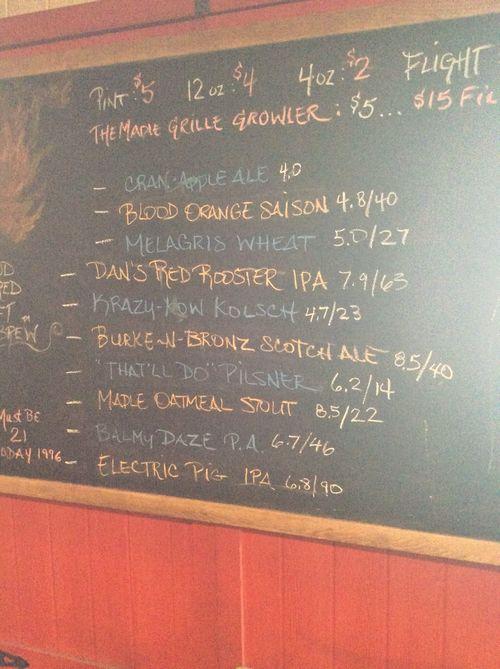 PINT: $5 12 oz: $4 4oz: $2 FLIGHT
THE MAPLE GRILLE GROWLER: $5... $15
- CRAN-APPLE ALE 4.0
- BLOOD ORANGE SAISON 4.8/40
- MELAGRIS WHEAT 5.0/27
- DAN'S RED ROOSTER IPA 7.9/63
- KRAZY-KOW KOLSCH 4.7/23
- BURKE-N-BRONZ SCOTCH ALE 8.5/40
- "THAT'LL DO" PILSNER 6.2/14
- MAPLE OATMEAL STOUT 8.5/22
- BALMY DAZE P.A. 6.7/46
- ELECTRIC PIG IPA 6.8/90
BREW
MUST BE
21
1996